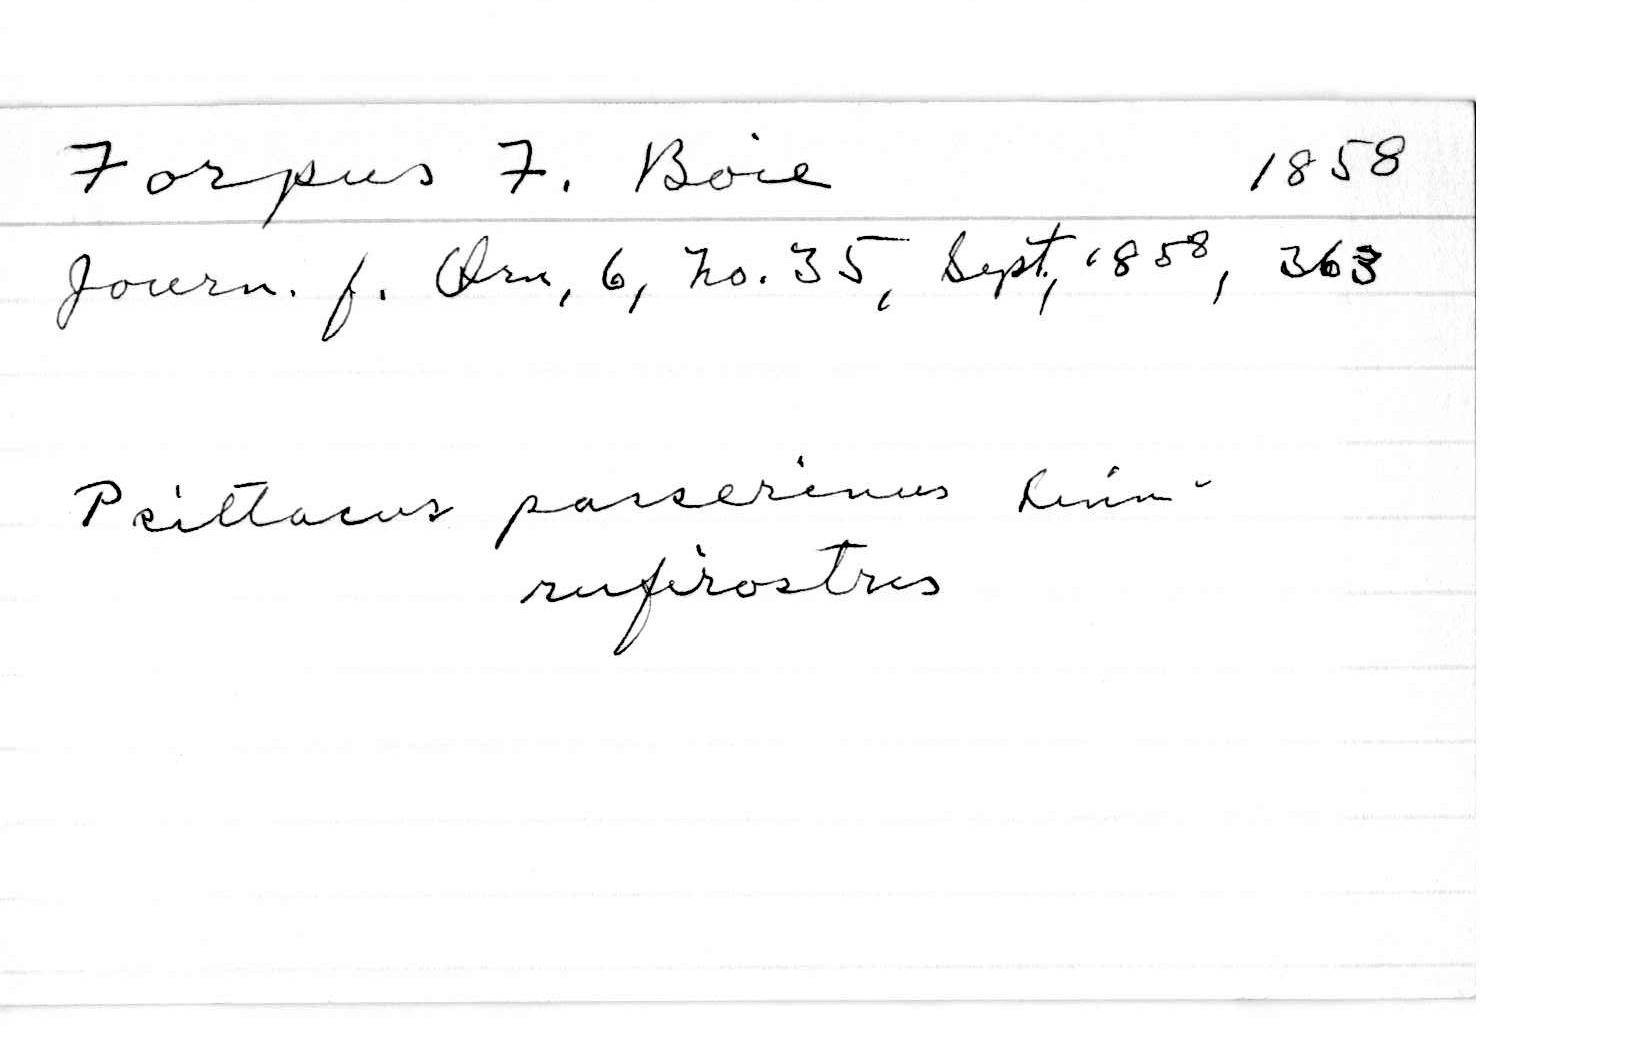 Forpus F. Boie 1858
Journ. f. Orn, 6, no. 35, Sept, 1858, 363
Psittacus passerinus Linn-
rufirostris